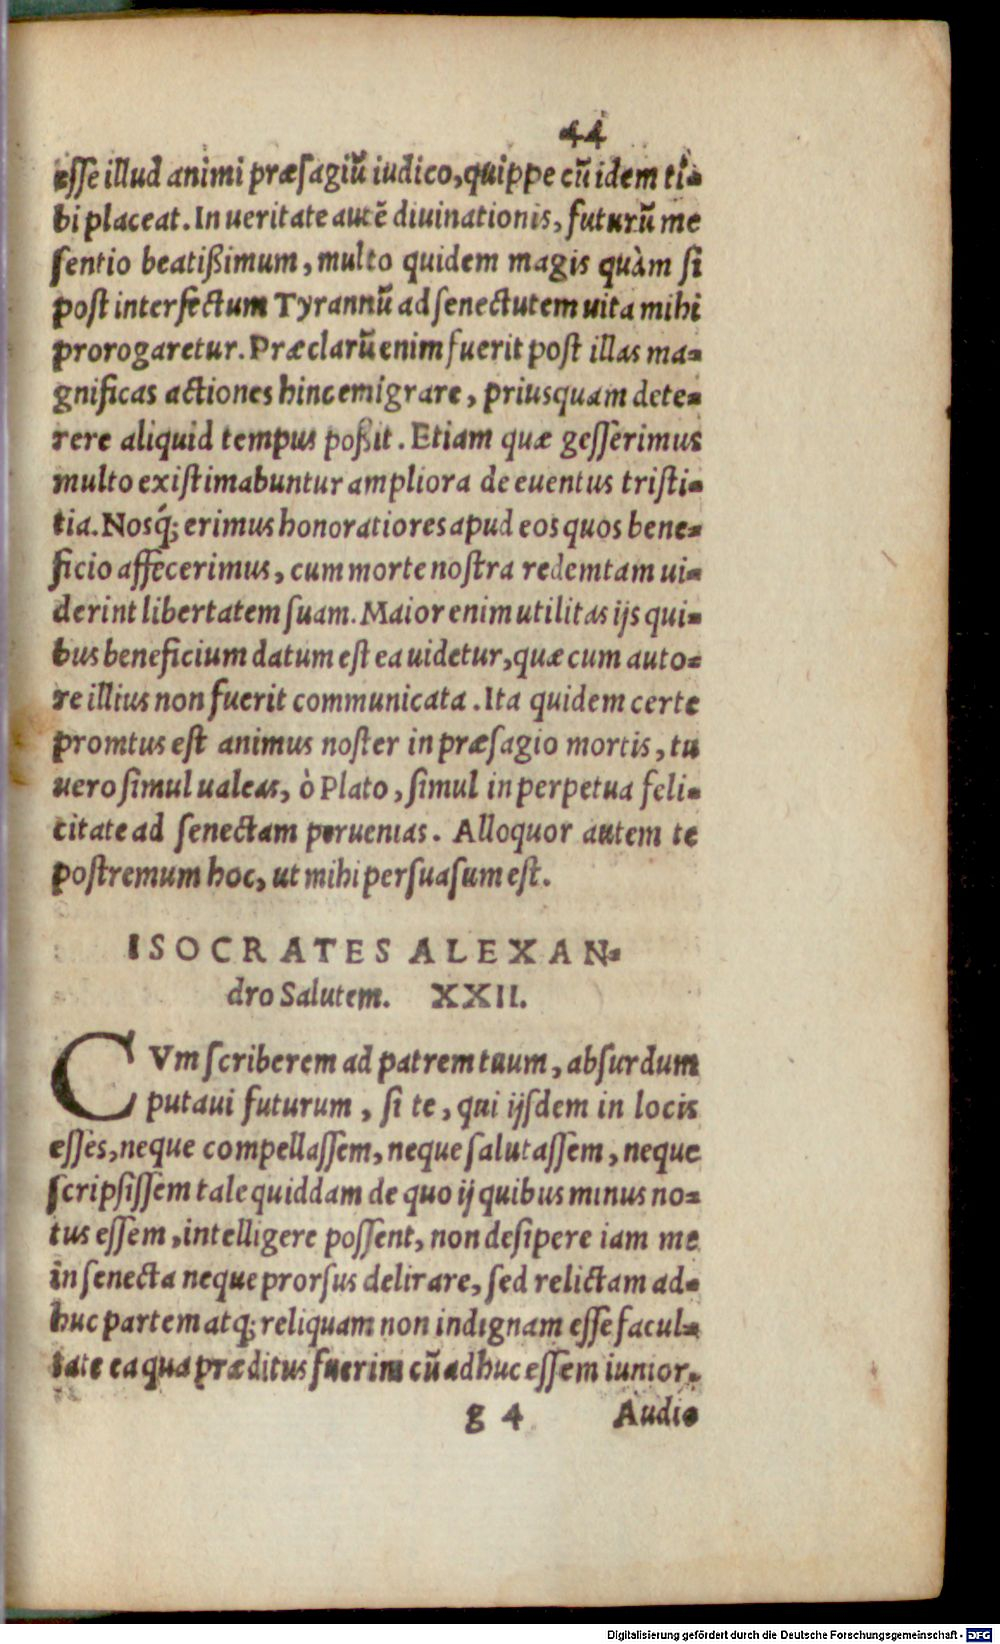 44
esse illud animi præsagiũ iudico, quippe cũ idem ti-
bi placeat. In ueritate autẽ diuinationis, futurũ me
sentio beatißimum, multo quidem magis quàm si
post interfectum Tyrannũ ad senectutem uita mihi
prorogaretur. Præclarũ enim fuerit post illas ma-
gnificas actiones hinc emigrare, priusquam dete-
rere aliquid tempus poßit. Etiam quæ gesserimus
multo existimabuntur ampliora de euentus tristi-
tia. Nosq́; erimus honoratiores apud eos quos bene-
ficio affecerimus, cum morte nostra redemtam ui-
derint libertatem suam. Maior enim utilitas ijs qui-
bus beneficium datum est ea uidetur, quæ cum auto-
re illius non fuerit communicata. Ita quidem certe
promtus est animus noster in præsagio mortis, tu
uero simul ualeas, ò Plato, simul in perpetua feli-
citate ad senectam peruenias. Alloquor autem te
postremum hoc, ut mihi persuasum est.
ISOCRATES ALEXAN-
dro Salutem. XXII.
CVm scriberem ad patrem tuum, absurdum
putaui futurum, si te, qui ijsdem in locis
esses, neque compellassem, neque salutassem, neque
scripsissem tale quiddam de quo ij quibus minus no-
tus essem, intelligere possent, non desipere iam me
in senecta neque prorsus delirare, sed relictam ad-
huc partem atq; reliquam non indignam esse facul-
tate ea qua præditus fuerim cũ adhuc essem iunior.
g 4 Audio
Digitalisierung gefördert durch die Deutsche Forschungsgemeinschaft - DFG